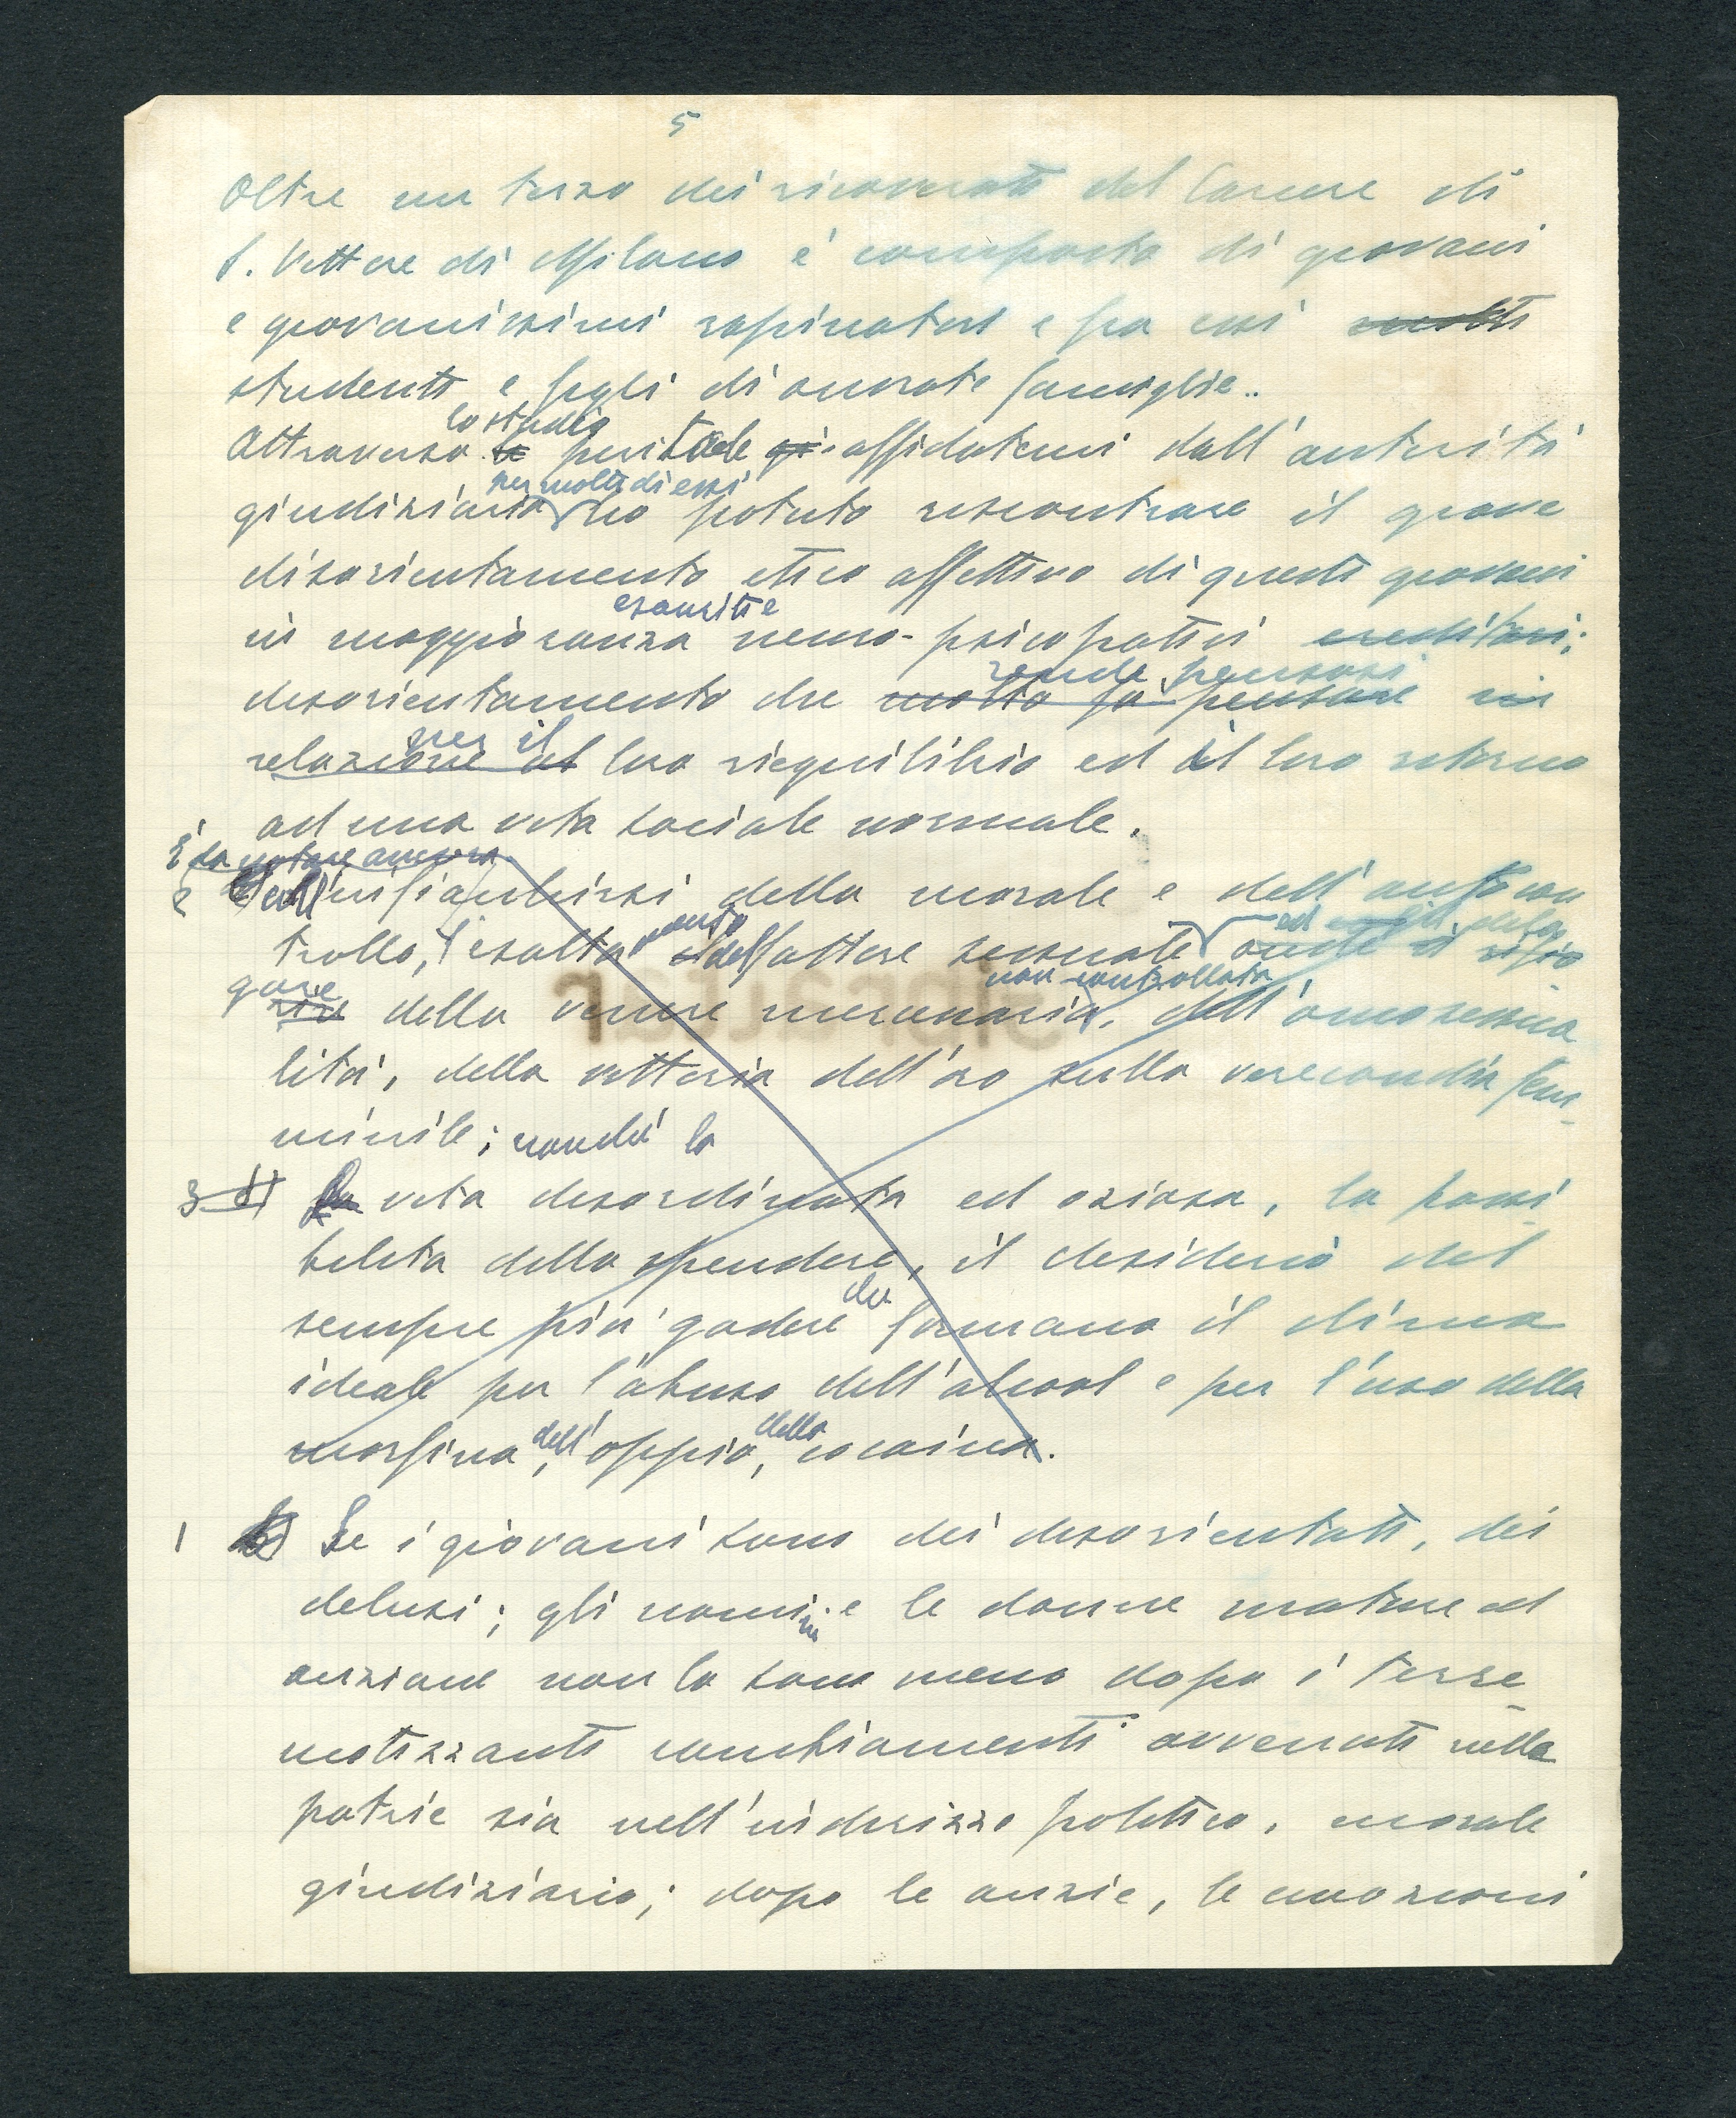 5
Oltre un terzo dei ricoverati del Carcere di
S. Vittore di Milano è composta di giovani
e giovanissimi rapinatori e fra essi molti
studenti e figli di onorate famiglie..
lo studio
Attraverso le peritale affidatemi dall'autorità
per molti di essi
giudiziaria ho potuto riscontrare il grave
disorientamento etico affettivo di questi giovani
esaurite
in maggioranza neuro-psicopatici ereditari;
rende pensosi
disorientamento che molto fa pensare in
per il
relazione al loro riequilibrio ed il loro ritorno
ad una vita sociale normale.
È da notare ancora
2 all'infiacchirsi della morale e dell'autocon
mento ed
trollo, l'esalta dell'attore sessuale onde si rifio
gare non controllata
rire della venere mercenaria, dell'omosessua
lità, della vittoria dell'oro sulla verecondia fem-
minile; nonché la
3 d) La vita disordinata ed oziosa, la possi
bilità dello spendere, il desiderio del
che
sempre più godere formano il clima
ideale per l'abuso dell'alcool e per l'uso della
dell' della
morfina, oppio, cocaina.
1 b) Se i giovani sono dei disorientati, dei
delusi; gli uomini e le donne mature ed
anziane non lo sono meno dopo i terre-
motizzanti cambiamenti avvenuti nella
patrie sia nell'indirizzo politico, morale
giudiziario; dopo le ansie, le emozioni